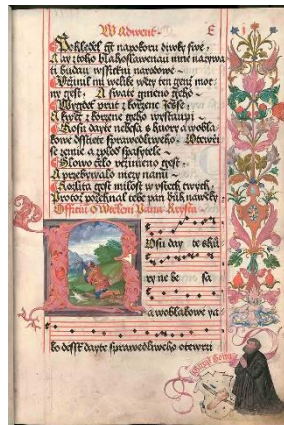 W Adwent. E
Pohleděl gt na pokoru diwky swe,
A ay z toho blahoslawenau mne nazywa
ti budau wssickni narodowe
Vczinil mi welike wěcy ten genž moc
ny gest, A swate gmeno geho
Wygdet prut z kořene Jesse,
A kwět z kořene geho wystaupi
Rosu dayte nebesa s huory a wobla
kowe dsstiete sprawedliweho. Otewři
se zemie a zploď spasytele
Slowo tělo vczineno gest,
A przebywalo mezy nami
Rozlita gest milost w rtech twych,
Protož požehnal tebe pan buh na wěky
Officium o Wtělení Pana Krysta
Rosu day te s hů
ry ne be sa
a woblakowe ya
ko dessť dayte sprawedliweho otewrzi